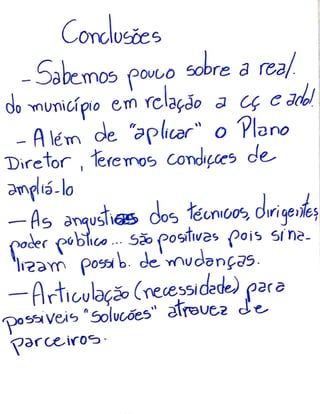 Conclusões
- Sabemos pouco sobre a real.
do município em relação a cç e adol.
- Além de "aplicar" o Plano
Diretor, teremos condições de
ampliá-lo
- As angustias dos técnicos, dirigentes,
poder público... são positivas pois sina-
lizam possib. de mudanças.
- Articulação (necessidade) para
possiveis "soluções" atravez de
parceiros.